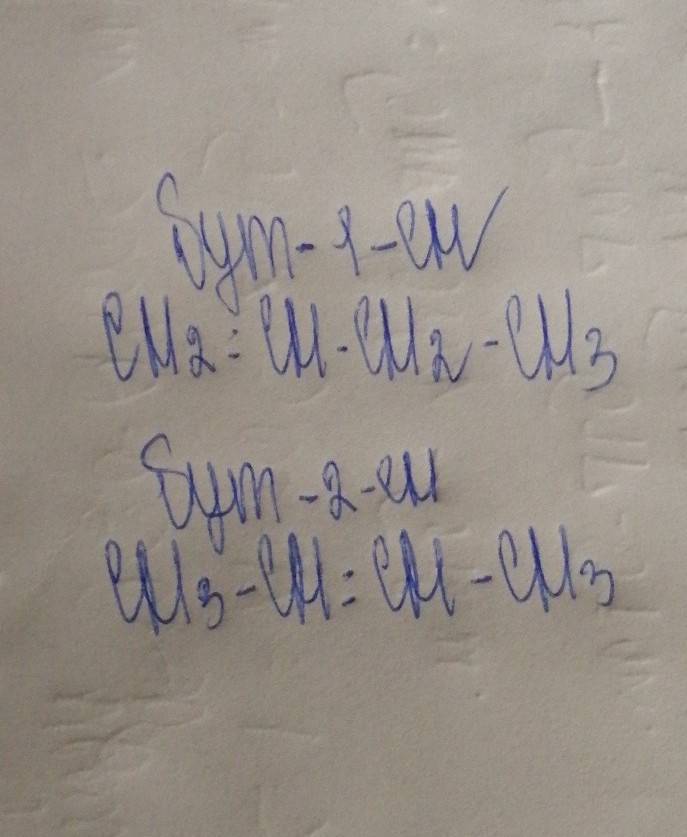 Бут-1-ен
CH2=CH-CH2-CH3
Бут-2-ен
CH3-CH=CH-CH3